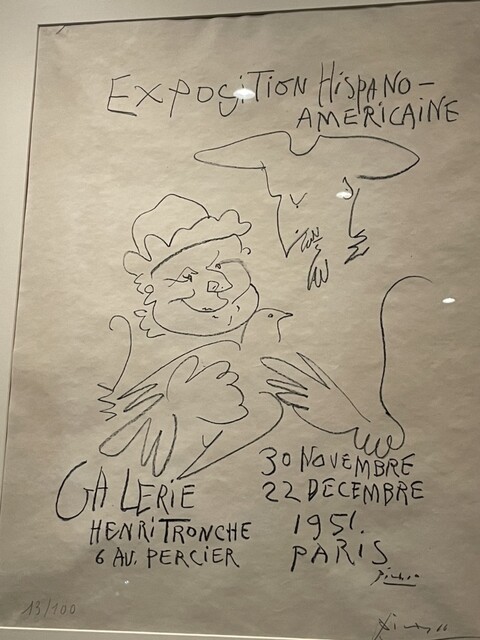 EXPOSITION HISPANO-
AMERICAINE
GALERIE
HENRI TRONCHE
6 AV. PERCIER
30 NOVEMBRE
22 DECEMBRE
1951.
PARIS
Picasso
13/100
Picasso